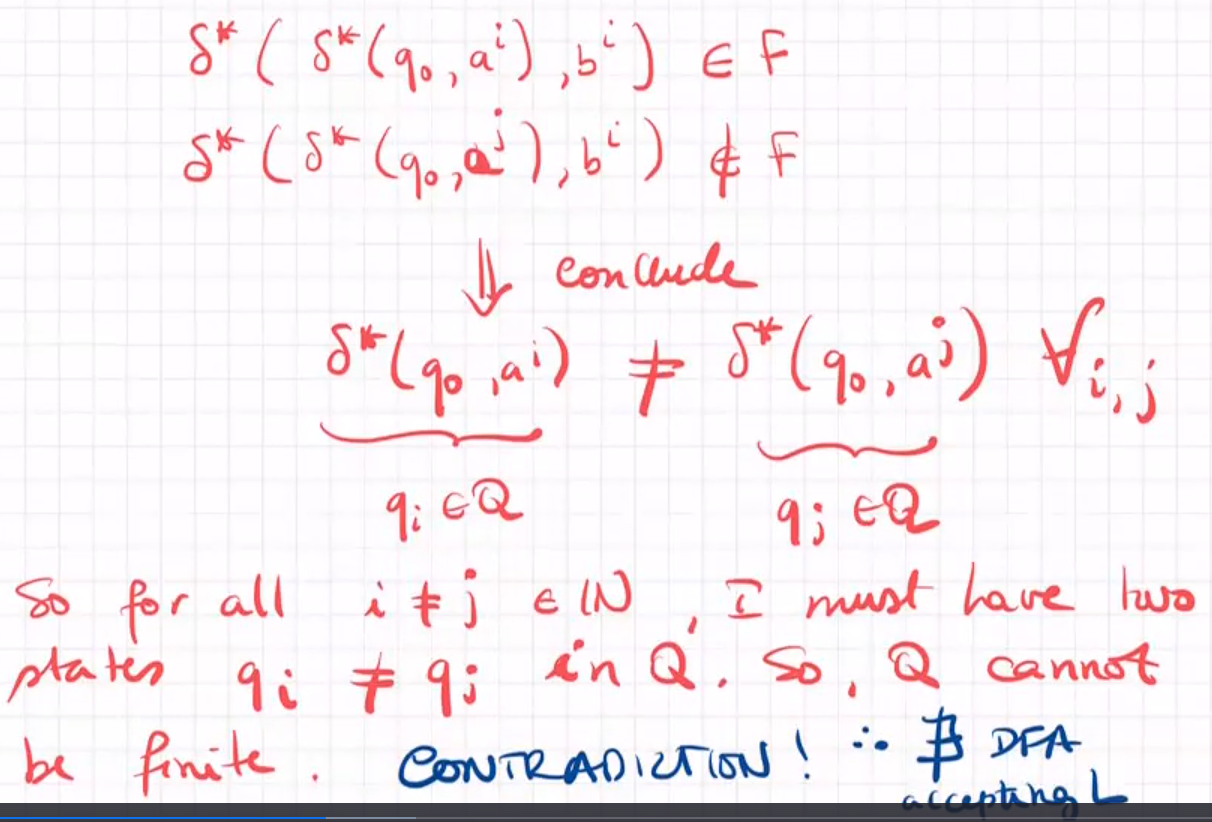 δ*( δ*(q₀, aⁱ), bⁱ) ∈ F
δ*( δ*(q₀, aʲ), bⁱ) ∉ F
⇓ conclude
δ*(q₀, aⁱ) ≠ δ*(q₀, aʲ) ∀ᵢ,ⱼ
qᵢ ∈ Q qⱼ ∈ Q
So for all i ≠ j ∈ ℕ, I must have two
states qᵢ ≠ qⱼ in Q. So, Q cannot
be finite. CONTRADICTION! ∴ ∄ DFA
accepting L